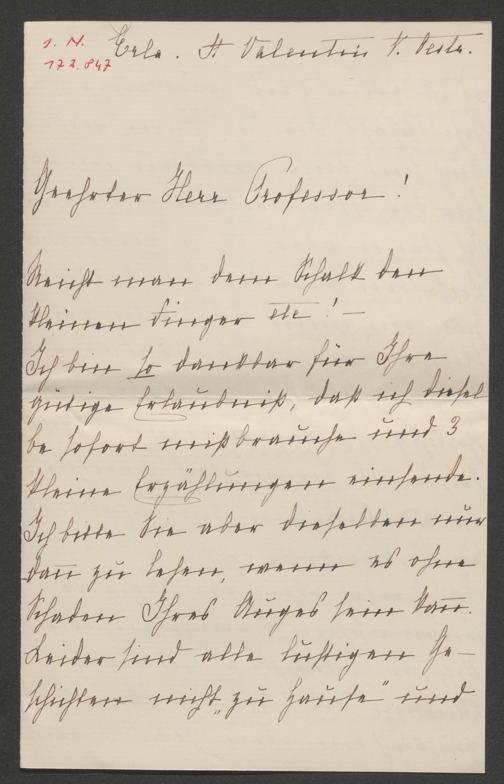 I. N.
172.847
Erla. St Valentin N. Oestr.
Geehrter Herr Professor!
Reicht man dem Schalk den
kleinen Finger etc! –
Ich bin so dankbar für Ihre
gütige Erlaubniß, daß ich diesel
be sofort mißbrauche und 3
kleine Erzählungen einsende.
Ich bitte Sie aber dieselben nur
dan̅ zu lesen, wenn es ohne
Schaden Ihres Auges sein kan̅.
Leider sind alle lustigen Ge-
schichten nicht „zu Hause" und